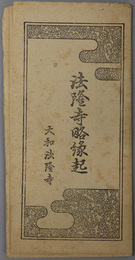 法隆寺略縁起
大和法隆寺